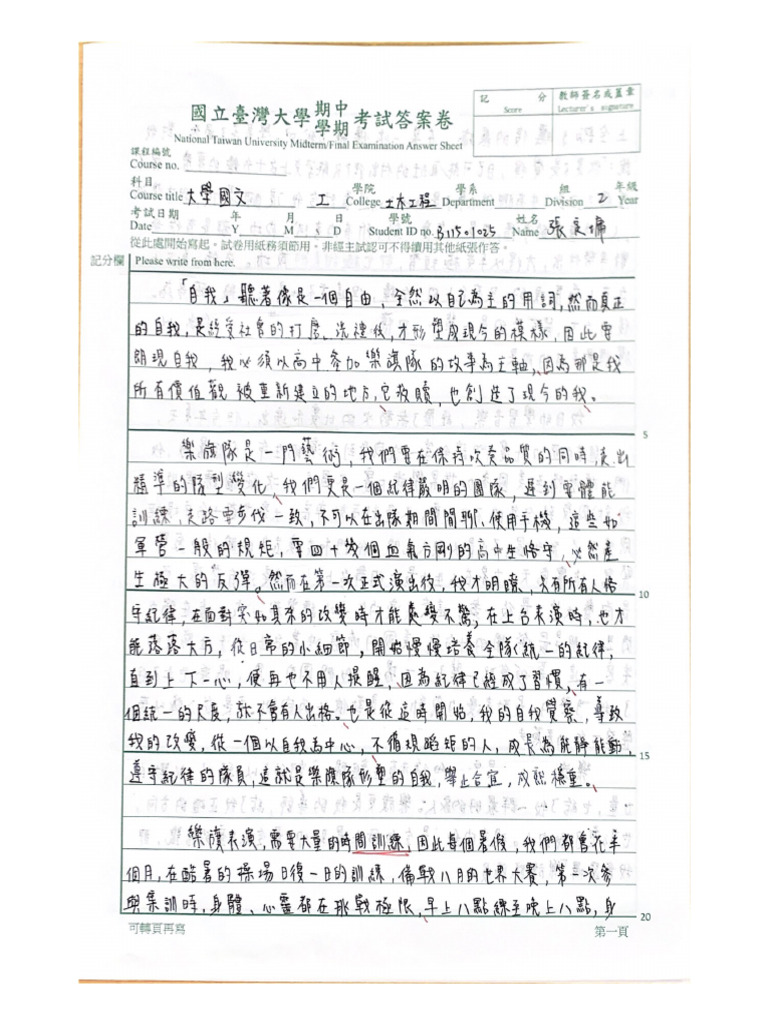 國立臺灣大學期中學期考試答案卷
National Taiwan University Midterm/Final Examination Answer Sheet
記分 Score
教師簽名或蓋章 Lecturer's signature
課程編號
Course no.
科目 學院 學系 組 年級
Course title 大學國文 工 College 土木工程 Department Division 2 Year
考試日期 年 月 日 學號 姓名
Date Y M D Student ID no. B11501025 Name 張
從此處開始寫起。試卷用紙務須節用。非經主試認可不得續用其他紙張作答。
記分欄 Please write from here.
「自我」聽著像是一個自由、全然以自己為主的用詞,然而真正
的自我,是經受社會的打磨、洗禮後,才形塑成現今的模樣,因此要
朗現自我,我必須以高中參加樂旗隊的故事為主軸、因為那是我
所有價值觀被重新建立的地方,它救贖,也創造了現今的我。
5
樂旗隊是一門藝術,我們要在保持吹奏品質的同時,走出
精準的隊型變化,我們更是一個紀律嚴明的團隊,遲到要體能
訓練,走路要步伐一致,不可以在出隊期間閒聊、使用手機,這些如
軍營一般的規矩,要四十幾個血氣方剛的高中生恪守,必然產
生極大的反彈。然而在第一次正式演出後,我才明瞭,只有所有人恪
10
守紀律,在面對突如其來的改變時才能處變不驚,在上台表演時,也才
能落落大方,從日常的小細節,開始慢慢培養全隊統一的紀律,
直到上下一心,便再也不用人提醒,因為紀律已經成了習慣,有一
個統一的尺度,就不會有人出格。也是從這時開始,我的自我覺察,導致
我的改變,從一個以自我為中心,不循規蹈矩的人,成長為能靜能動,
15
遵守紀律的隊員,這就是樂旗隊形塑的自我,舉止合宜,成熟穩重。
樂旗表演,需要大量的時間訓練,因此每個暑假,我們都會花半
個月,在酷暑的操場日復一日的訓練,備戰八月的世界大賽,第一次參
與集訓時,身體、心靈都在挑戰極限,早上八點練至晚上八點,身
20
可轉頁再寫 第一頁